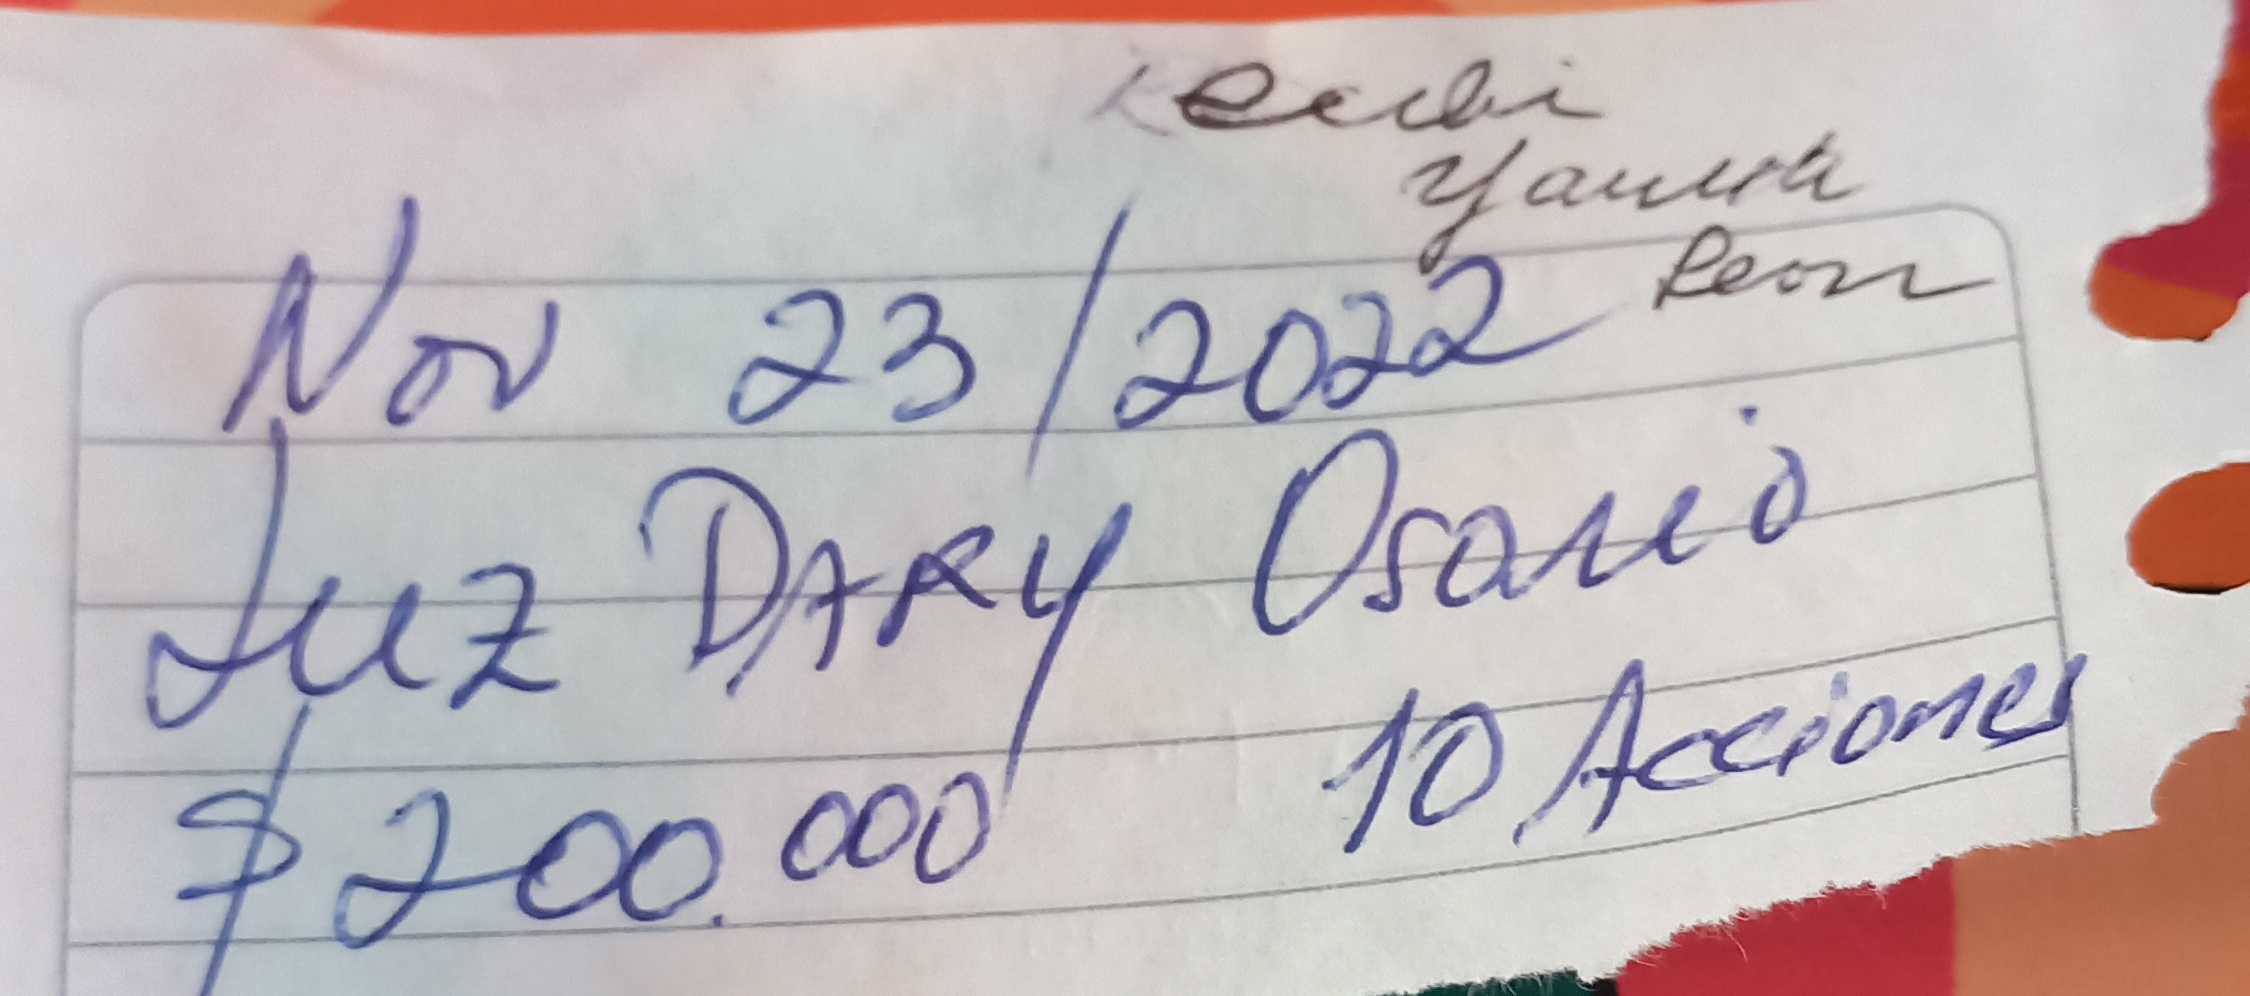 Recibi
Leon
Nov 23/2022
Luz DARY Osorio
$200.000 10 Acciones